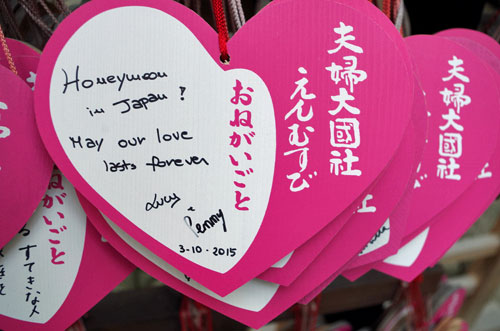 Honeymoon
in Japan ?
May our love
lasts forever
Lucy
Penny
3-10-2015
おねがいごと
夫婦大國社
えんむすび
夫婦大國社
おねがいごと
すてきな人